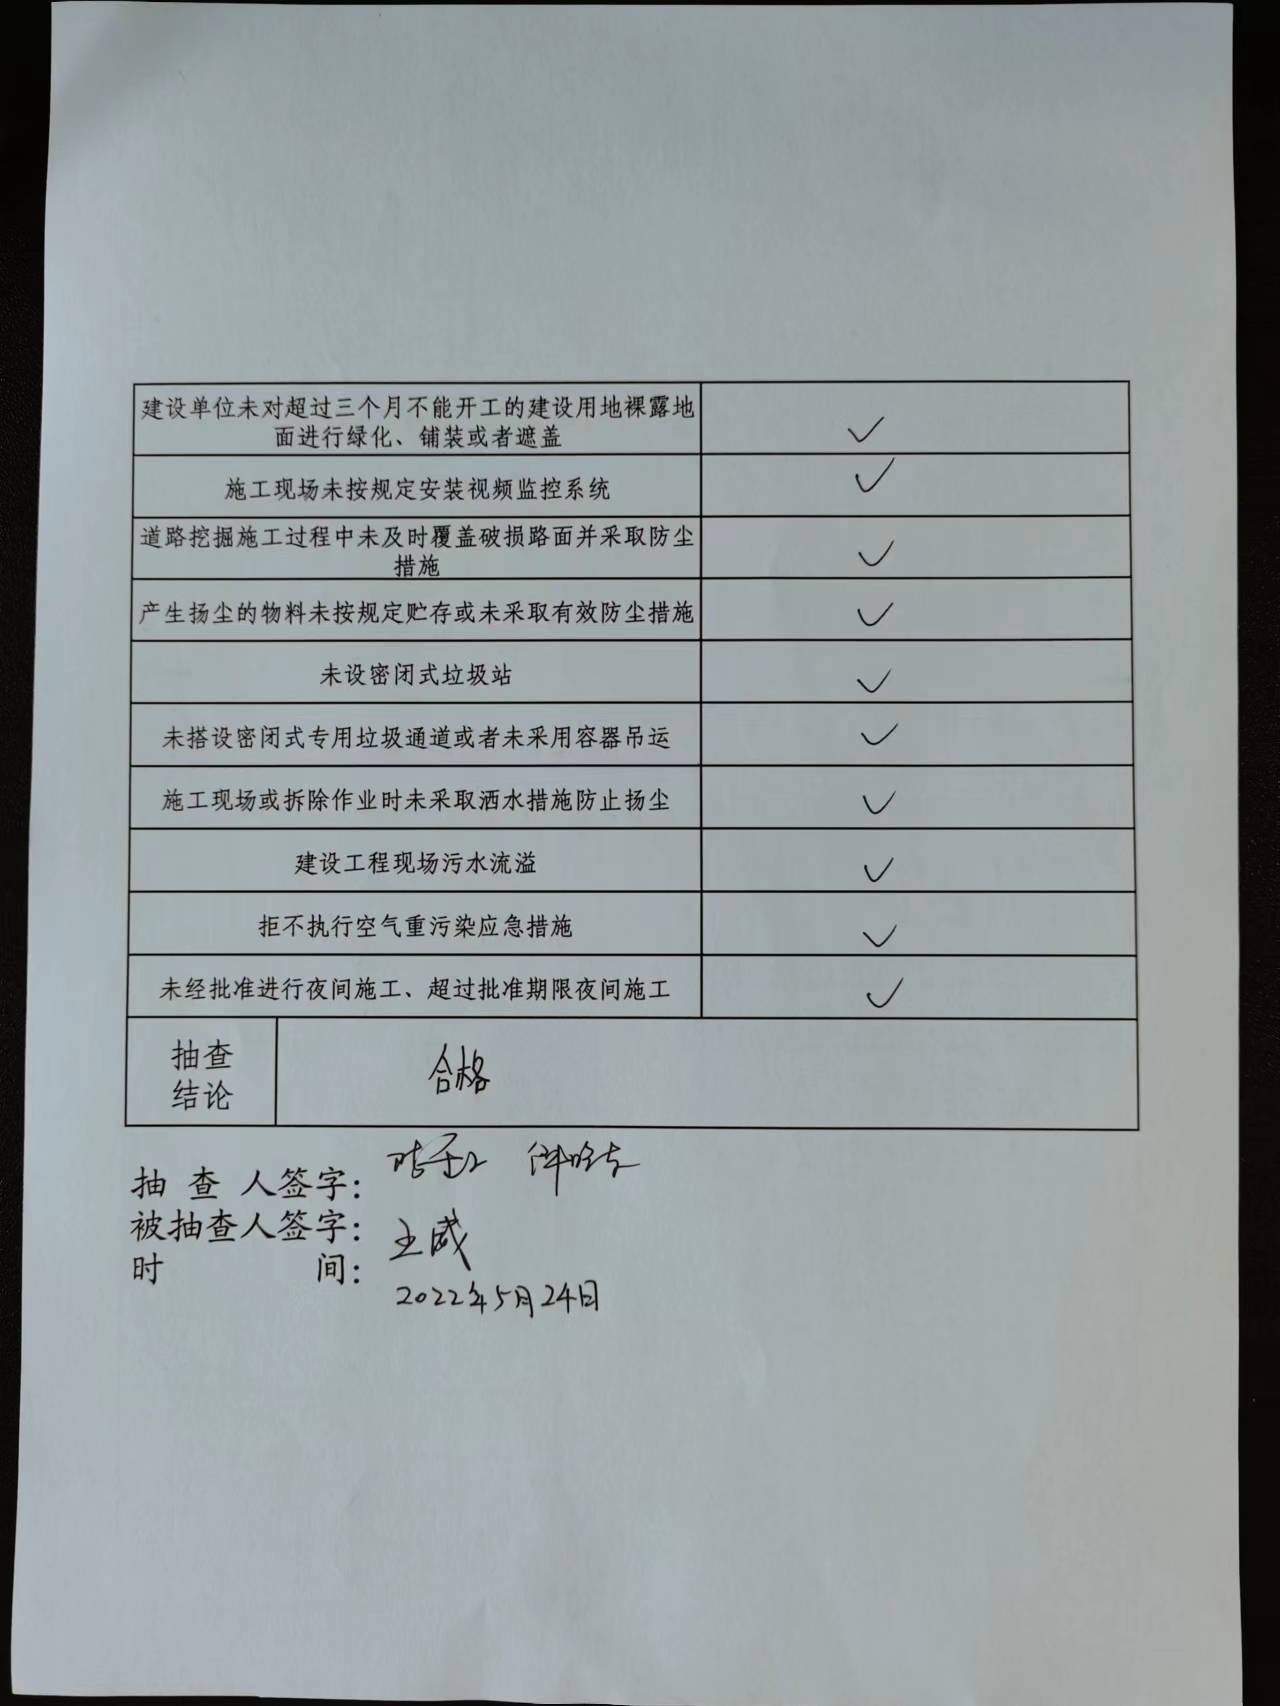 建设单位未对超过三个月不能开工的建设用地裸露地
面进行绿化、铺装或者遮盖
✓
施工现场未按规定安装视频监控系统
✓
道路挖掘施工过程中未及时覆盖破损路面并采取防尘
措施
✓
产生扬尘的物料未按规定贮存或未采取有效防尘措施
✓
未设密闭式垃圾站
✓
未搭设密闭式专用垃圾通道或者未采用容器吊运
✓
施工现场或拆除作业时未采取洒水措施防止扬尘
✓
建设工程现场污水流溢
✓
拒不执行空气重污染应急措施
✓
未经批准进行夜间施工、超过批准期限夜间施工
✓
抽查
结论
合格
抽 查 人签字：
被抽查人签字： 王威
时 间：
2022年5月24日